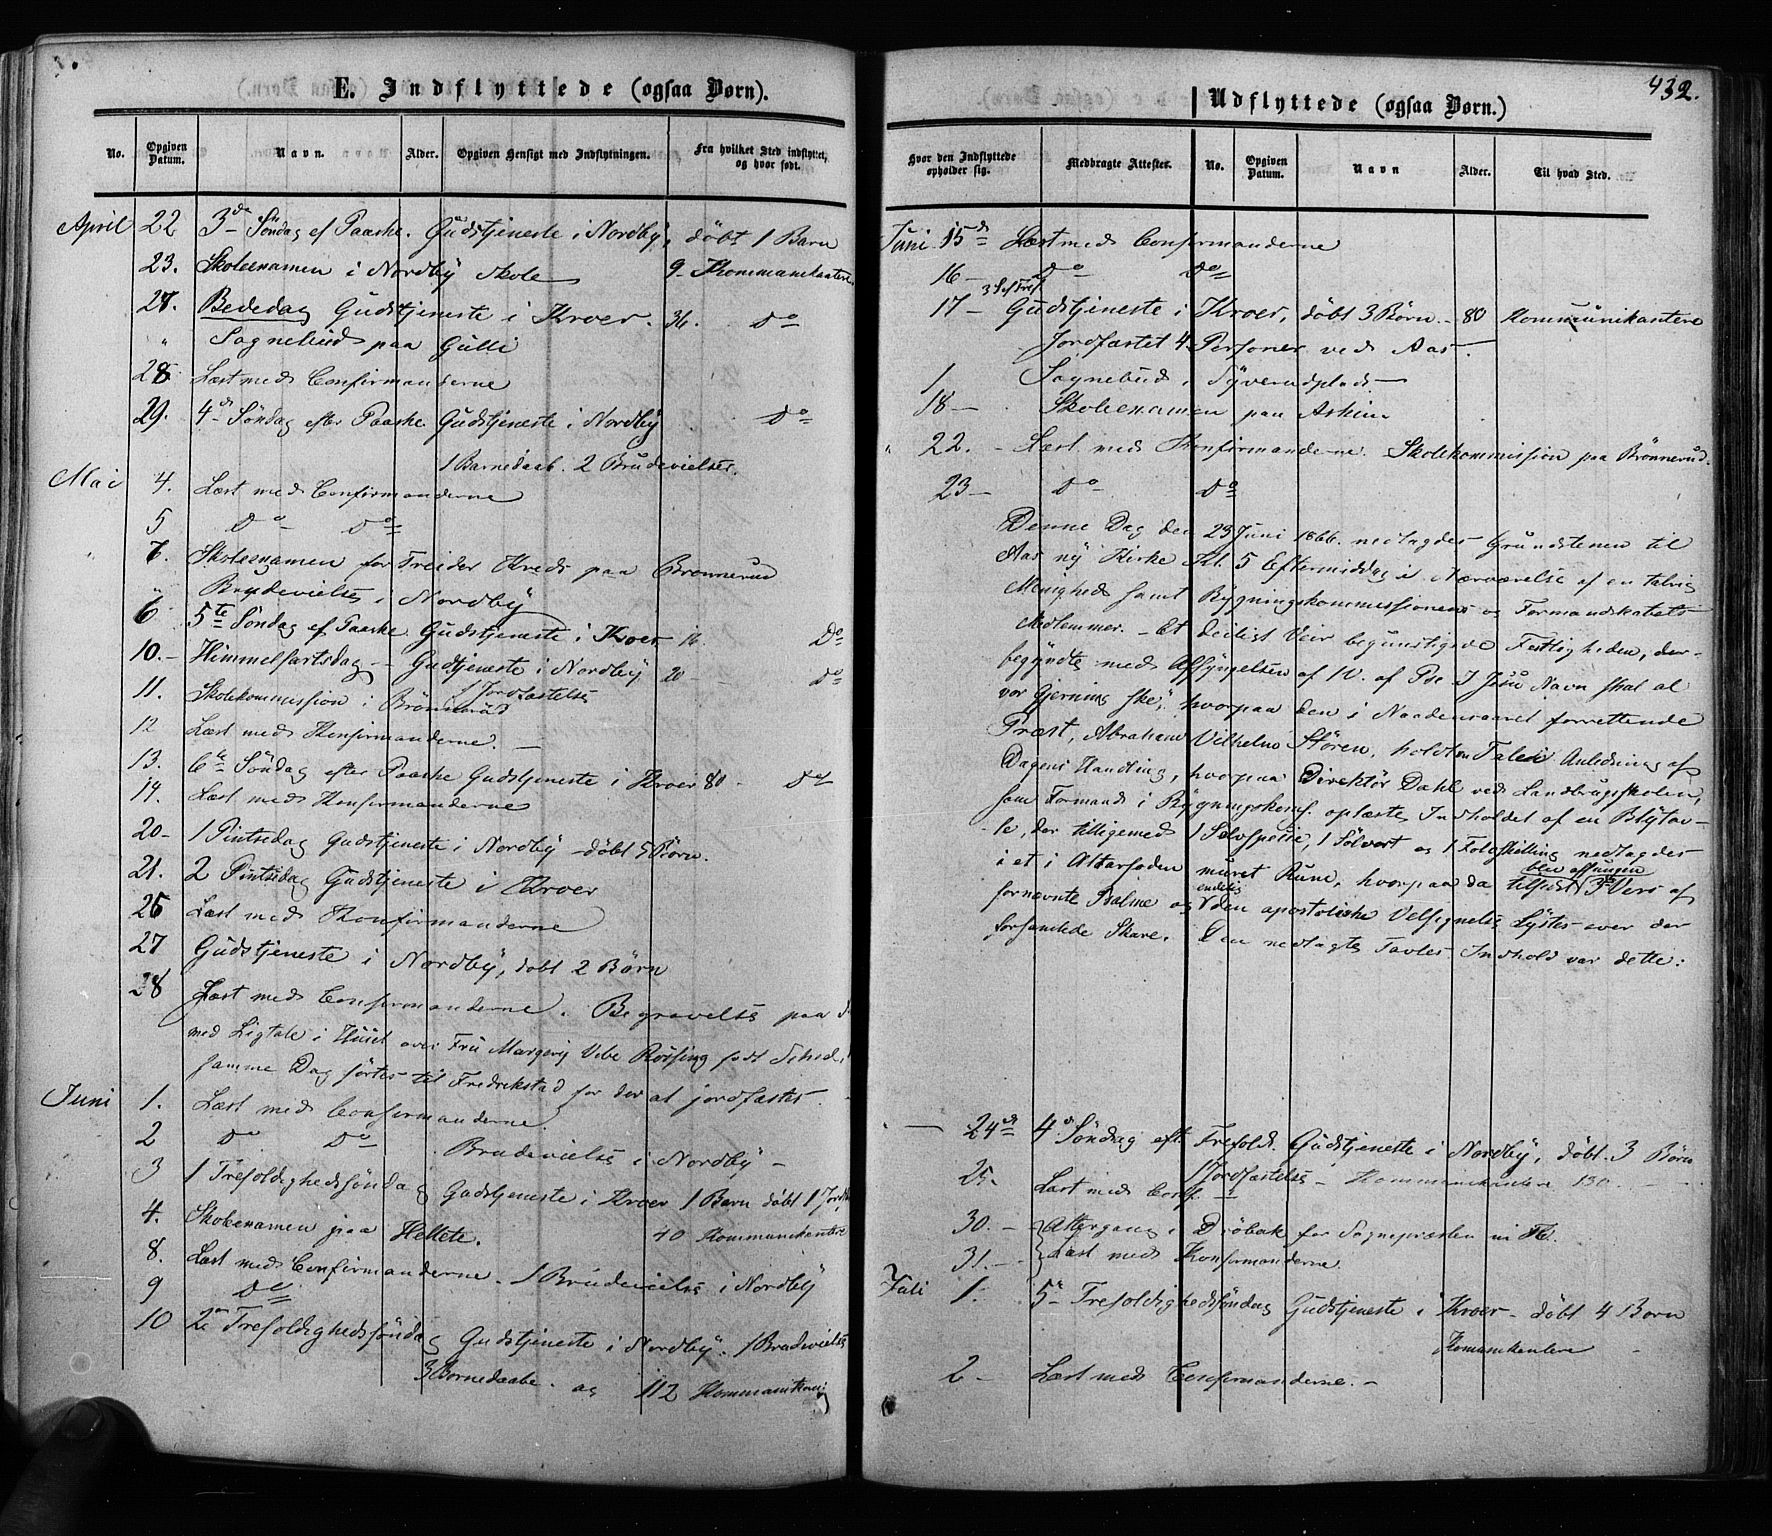 E. Indflyttede (ogsaa Børn).
No.
Opgiven Datum.
Navn.
Alder.
Opgiven Hensigt med Indflytningen.
Fra hvilket Sted indflyttet, og hvor født.
April 22 3de Søndag ef Paaske. Gudstjeneste i Nordby, døbt 1 Barn
23. Skoleexamen i Nordby Skole 9 Kommunikantere
27. Bededag Gudstjeneste i Kroer. 36. Do
" Sognebud paa Gulli
28 Læst med Confirmanderne
29. 4de Søndag efter Paaske Gudstjeneste i Nordby Do
1 Barnedaab. 2 Brudevielser.
Mai 4. Læst med Confirmanderne
5 Do Do
7. Skoleexamen for Kreds paa Brønnerud
" Brudevielse i Nordby
6 5te Søndag ef Paaske Gudstjeneste i Kroer 16. Do
10.- Himmelfartsdag - Gudtjeneste i Nordby 20 - Do
1 Jordfæstelse
11. Skolekommission i Brønnerud
12 Læst med Konfirmanderne. -
13. 6te Søndag efter Paaske Gudstjeneste i Kroer 80 - Do
14. Læst med Konfirmanderne
20- 1 Pintsedag Gudstjeneste i Nordby - døbt 5 Børn.
21. 2 Pintsedag Gudstjeneste i Kroer
26 Læst med Konfirmanderne
27 Gudstjeneste i Nordby, døbt 2 Børn
28 Læst med Confirmanderne. Begravelse paa
med Ligtale i Huset over Fru Margery Vibe født
samme Dag førtes til Fredrikstad for der at jordfæstes.
Juni 1. Læst med Confirmanderne
2 Do Do Brudevielse i Nordby -
3 1 Trefoldighedssøndag Gudstjeneste i Kroer 1 Barn døbt 1
4. Skoleexamen paa 40 Kommunikantere
8. Læst med Confirmanderne. 1 Brudevielse i Nordby
9 Do
10 2den Trefoldighedssøndag Gudstjeneste i Nordby. 1 Brudevielse
3 Barnedaabe. og 112 Kommunikan
432.
Udflyttede (ogsaa Børn.)
Hvor den Indflyttede opholder sig.
Medbragte Attester.
No.
Opgiven Datum.
Navn
Alder.
Til hvad Sted.
Juni 15de Læst med Confirmanderne
16- Do Do
3 S ef Tref.
17- Gudstjeneste i Kroer, døbt 3 Børn. - 80 Kommunikantere
Jordfæstet 4 Personer ved Aas -
Sognebud i Syverudplads -
18- Skoleexamen paa Askim
" 22. - Læst med Konfirmanderne. Skolekommission paa Brønnerud.
23- Do Do
Denne Dag den 23 Juni 1866 nedlagdes Grundstenen til
Aas ny Kirke Kl. 5 Eftermiddag i Nærværelse af en talrig
Menighed samt Bygningskommissionens og Formandskabets
Medlemmer. - Et deiligt Veir begunstigede Festligheden, der
begyndte med Afsyngelsen af N. af Ps. I Jesu Navn skal al
vor gjerning ske, hvorpaa den i Naadensaaret forrettende
Præst, Abraham Vilhelm Støren, holdt en Tale i Anledning af
Dagens Handling, hvorpaa Direktør Dahl ved Landbrugsskolen,
som Formand i Bygningskomf. oplæste Indholdet af en Blytav-
le, der tilligemed 1 Sølvspecie, 1 Sølvort og 1 Tolvskilling nedlagdes
i et i Alterfoden muret Rum, hvorpaa da tilsidst blev afsungen 3die Vers af
fornævnte Psalme og endelig den apostoliske Velsignelse lystes over den
forsamlede Skare. Den nedlagte Tavles Indhold var dette:
24de 4de Søndag eft. Trefold. Gudstjeneste i Nordby, døbt 3 Børn
1 Jordfæstelse - Kommunikantere 130 - -
25. Læst med Conf.
30. - Altergang i Drøbak for Sognepræsten
31. - Læst med Konfirmanderne.
Juli 1. 5te Trefoldighedssøndag Gudstjeneste i Kroer - døbt 4 Børn
Komunikantere
2 - Læst med Confirmanderne. -